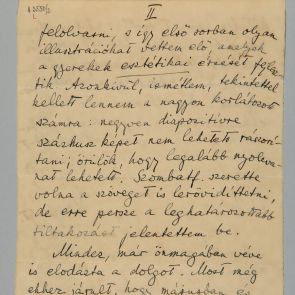 II
felolvasni, s így első sorban olyan
illusztrációkat vettem elő, amelyek
a gyerekek esztétikai érzését fejlesz-
tik. Azonkívül, ismétlem, tekintettel
kellett lennem a nagyon korlátozott
számra: negyven diapozitivre
százhusz képet nem lehetett rászorí-
tani; örülök, hogy legalább nyolcva-
nat lehetett. Szombatf. szerette
volna a szöveget is lerövidíttetni,
de erre persze a leghatározottabb
tiltakozást jelentettem be.
Mindez, már önmagában véve
is elodázta a dolgot. Most még
ehhez járult, hogy másusban és